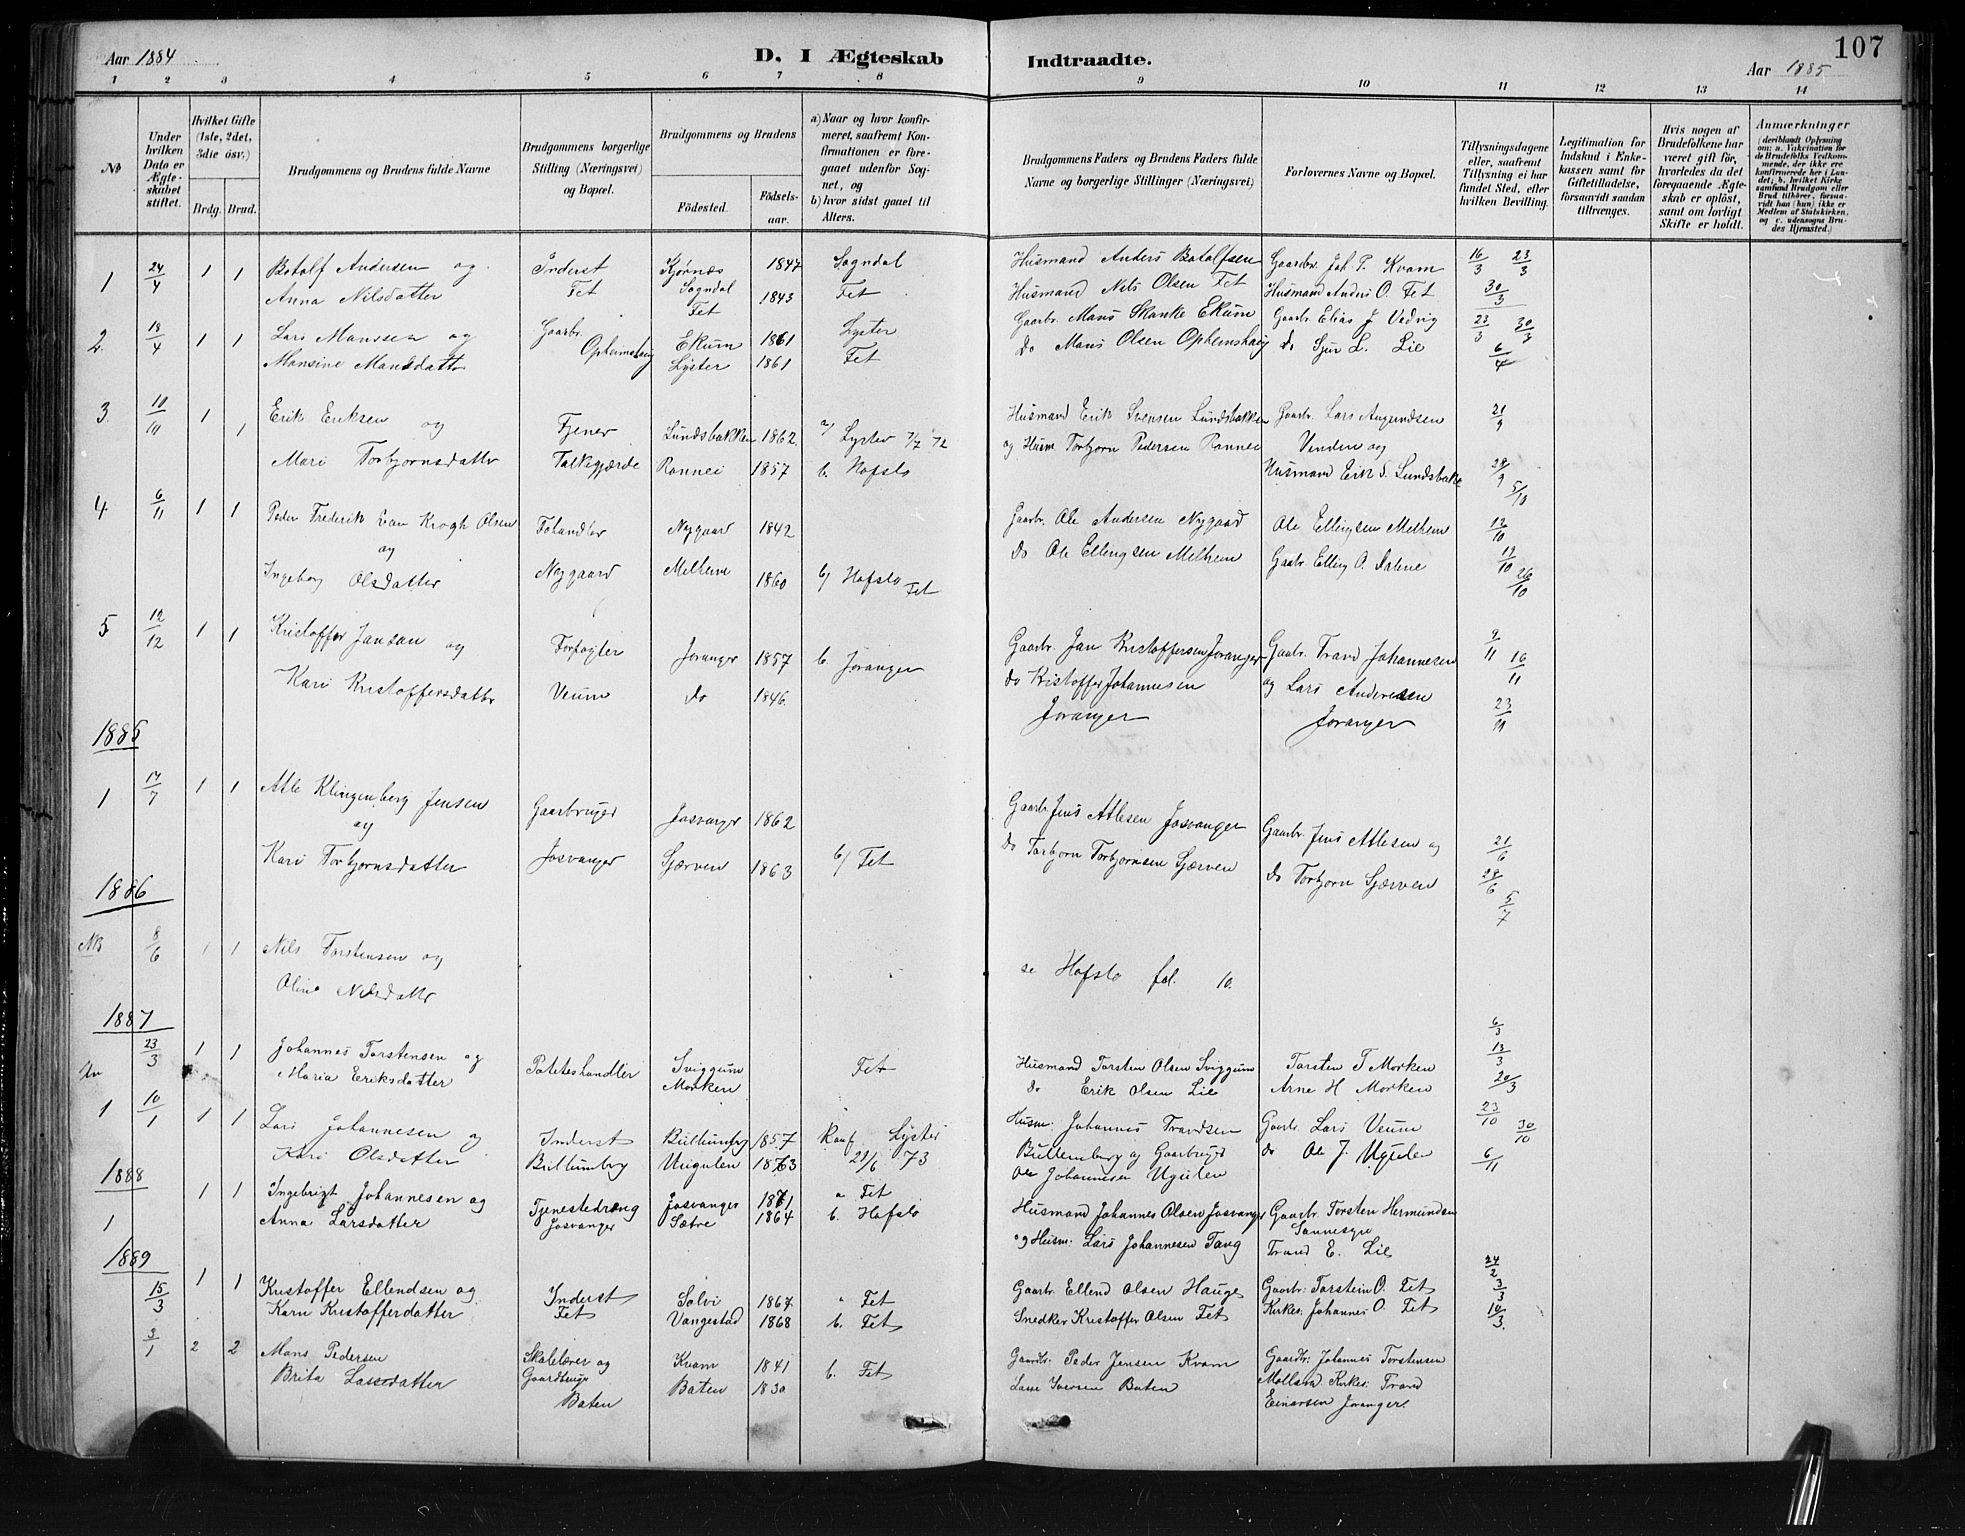 Aar 1884
D. I Ægteskab
Indtraadte.
Aar 1885
107
1 2 3 4 5 6 7 8 9 10 11 12 13 14
No
Under hvilken Dato er Ægteskabet stiftet.
Hvilket Gifte (1ste, 2det, 3die osv.)
Brdg. Brud.
Brudgommens og Brudens fulde Navne
Brudgommens borgerlige Stilling (Næringsvei) og Bopæl.
Brudgommens og Brudens
Fødested.
Fødselsaar.
a) Naar og hvor konfirmeret, saafremt Konfirmationen er foregaaet udenfor Sognet, og
b) hvor sidst gaaet til Alters.
Brudgommens Faders og Brudens Faders fulde Navne og borgerlige Stillinger (Næringsvei)
Forlovernes Navne og Bopæl.
Tillysningsdagene eller, saafremt Tillysning ei har fundet Sted, efter hvilken Bevilling.
Legitimation for Indskud i Enkekassen samt for Giftetilladelse, forsaavidt saadan tiltrænges.
Hvis nogen af Brudefolkene har været gift før, hvorledes da det foregaaende Ægteskab er opløst, samt om lovligt Skifte er holdt.
Anmærkninger
(deriblandt Oplysning om: a. Vakcination for de Brudefolks Vedkommende, der ikke ere konfirmerede her i Landet; b. hvilket Kirkesamfund Brudgom eller Brud tilhører, forsaavidt han (hun) ikke er Medlem af Statskirken, og c. udensogns Brudes Hjemsted.)
1 24/4 1 1 Botolf Andersen og Inderst Kjørnæs 1847 Sogndal Husmand Anders Botolfsen Gaarbr. Joh. P. Kvam 16/3 23/3
Anna Nilsdatter Fet Sogndal Fet 1843 Fet Husmand Nils Olsen Fet Husmand Anders O. Fet 30/3
2 18/4 1 1 Lars Monssen og Gaarbr. Ekum 1861 Lyster Gaarbr. Mons Skanke Ekum Gaarbr. Elias J Vedvig 23/3 30/3
Monsine Monsdattr Opheimshaug Lyster 1861 Fet do Mons Olsen Opheimshaug do Sjur L. Lie 6/4
3 10/11 1 Erik Eriksen og Tjener Lundsbakken 1862 a/ Lyster 7/7 72 Husmand Erik Svensen Lundsbakken Gaarbr. Lars Amundsen 21/9
1 Mari Torbjørnsdattr Falkegjærde Rønnei 1857 b. Hafslo og Husm Torbjørn Pedersen Rønnei Venden og
Husmand Erik S. Lundsbakke 28/9 5/10
4 6/11 1 1 Peder Frederik van Krogh Olsen Fæhandler Nygaard 1842 Gaarbr. Ole Andersen Nygaard Ole Ellingsen Melheim 12/10
og do Ole Ellingsen Melheim Gaarbr Elling O. Dalene 19/10
Ingeborg Olsdatter Nygaard Melheim 1860 b/ Hafslo Fet 26/10
5 12/12 1 1 Kristoffer Jansøn og Forpagter Joranger 1857 b. Joranger Gaarbr. Jan Kristoffersen Joranger Gaarbr. Trond Johannesen 9/11 16/11
Kari Kristoffersdattr Veum do 1846. do Kristoffer Johannesen og Lars Andersen
Joranger Joranger 23/11
1885
1 17/7 1 1 Atle Klingenberg Jensen Gaarbruger Josvanger 1862 Gaarbr Jens Atlesen Josvanger Gaarbr. Jens Atlesen og 21/6
og
Kari Torbjørnsdatter Josvanger Sjærven 1863 b/ Fet do Torbjørn Torbjørnsen Sjærven do Torbjørn Sjærven 28/6
5/7
1886
NB 8/6 1 1 Nils Torstensen og
Oline Nilsdattr se Hafslo fol. 10.
1887
23/3 1 1 Johannes Torstensen og Potiteshandler Sviggum Fet Husmand Torsten Olsen Sviggum Torsten T Morken 6/3 13/3
Maria Eriksdatter Morken do Erik Olsen Lie Arne H Morken 20/3
1 10/1 1 1 Lars Johannesen og Inderst 1857 Konf Lyster Husm: Johannes Trondsen Gaarbr. Lars Veum 23/10 30/10
Kari Olsdatter 1863 21/6 73 og Gaarbruger do Ole J. Ugulen 6/11
Ole Johannesen Ugulen
1888
1 1 1 Ingebrigt Johannesen og Tjenestedreng Josvanger a Fet Husmand Johannes Olsen Josvanger Gaarbr. Torsten Hermundsen
Anna Larsdatter Josvanger Sætre 1864 b. Hafslo og Husm: Lars Johannesen Tang
Trond E. Lie
1889
15/3 1 1 Kristoffer Ellendsen og Inderst Solvi 1867. Fet Gaarbr. Ellend Olsen Hauge Gaarbr: Torstein O. Fet 24/2 3/3
Karn Kristofferdatter Fet Vangestad 1868 b. Fet Snedker Kristoffer Olsen Fet Kirkes: Johannes O. Fet 10/3.
3/1 2 2 Mons Pedersen Skolelærer og Kvam 1841 b. Fet Gaardbr. Peder Jensen Kvam Gaardbr: Johannes Torstensen
Brita Lassedatter Gaardbruger Baten Baten 1830 Lasse Iversen Baten Molland Kirkes: Trond
Einarsen Joranger.